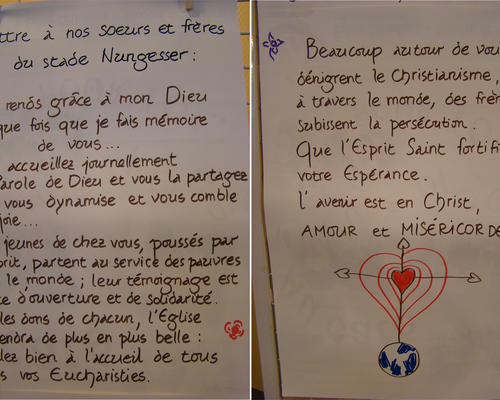 ttre à nos soeurs et frères
du stade Nungesser :
rends grâce à mon Dieu
que fois que je fais mémoire
de vous...
accueillez journellement
arole de Dieu et vous la partagez
vous dynamise et vous comble
joie...
jeunes de chez vous, poussés par
prit, partent au service des pauvres
le monde ; leur témoignage est
ce d'ouverture et de solidarité.
les dons de chacun, l'Église
endra de plus en plus belle :
lez bien à l'accueil de tous
s vos Eucharisties.
Beaucoup autour de vou
dénigrent le Christianisme,
à travers le monde, des frèr
subissent la persécution.
Que l'Esprit Saint fortifi
votre Espérance.
l'avenir est en Christ,
AMOUR et MISÉRICORDE